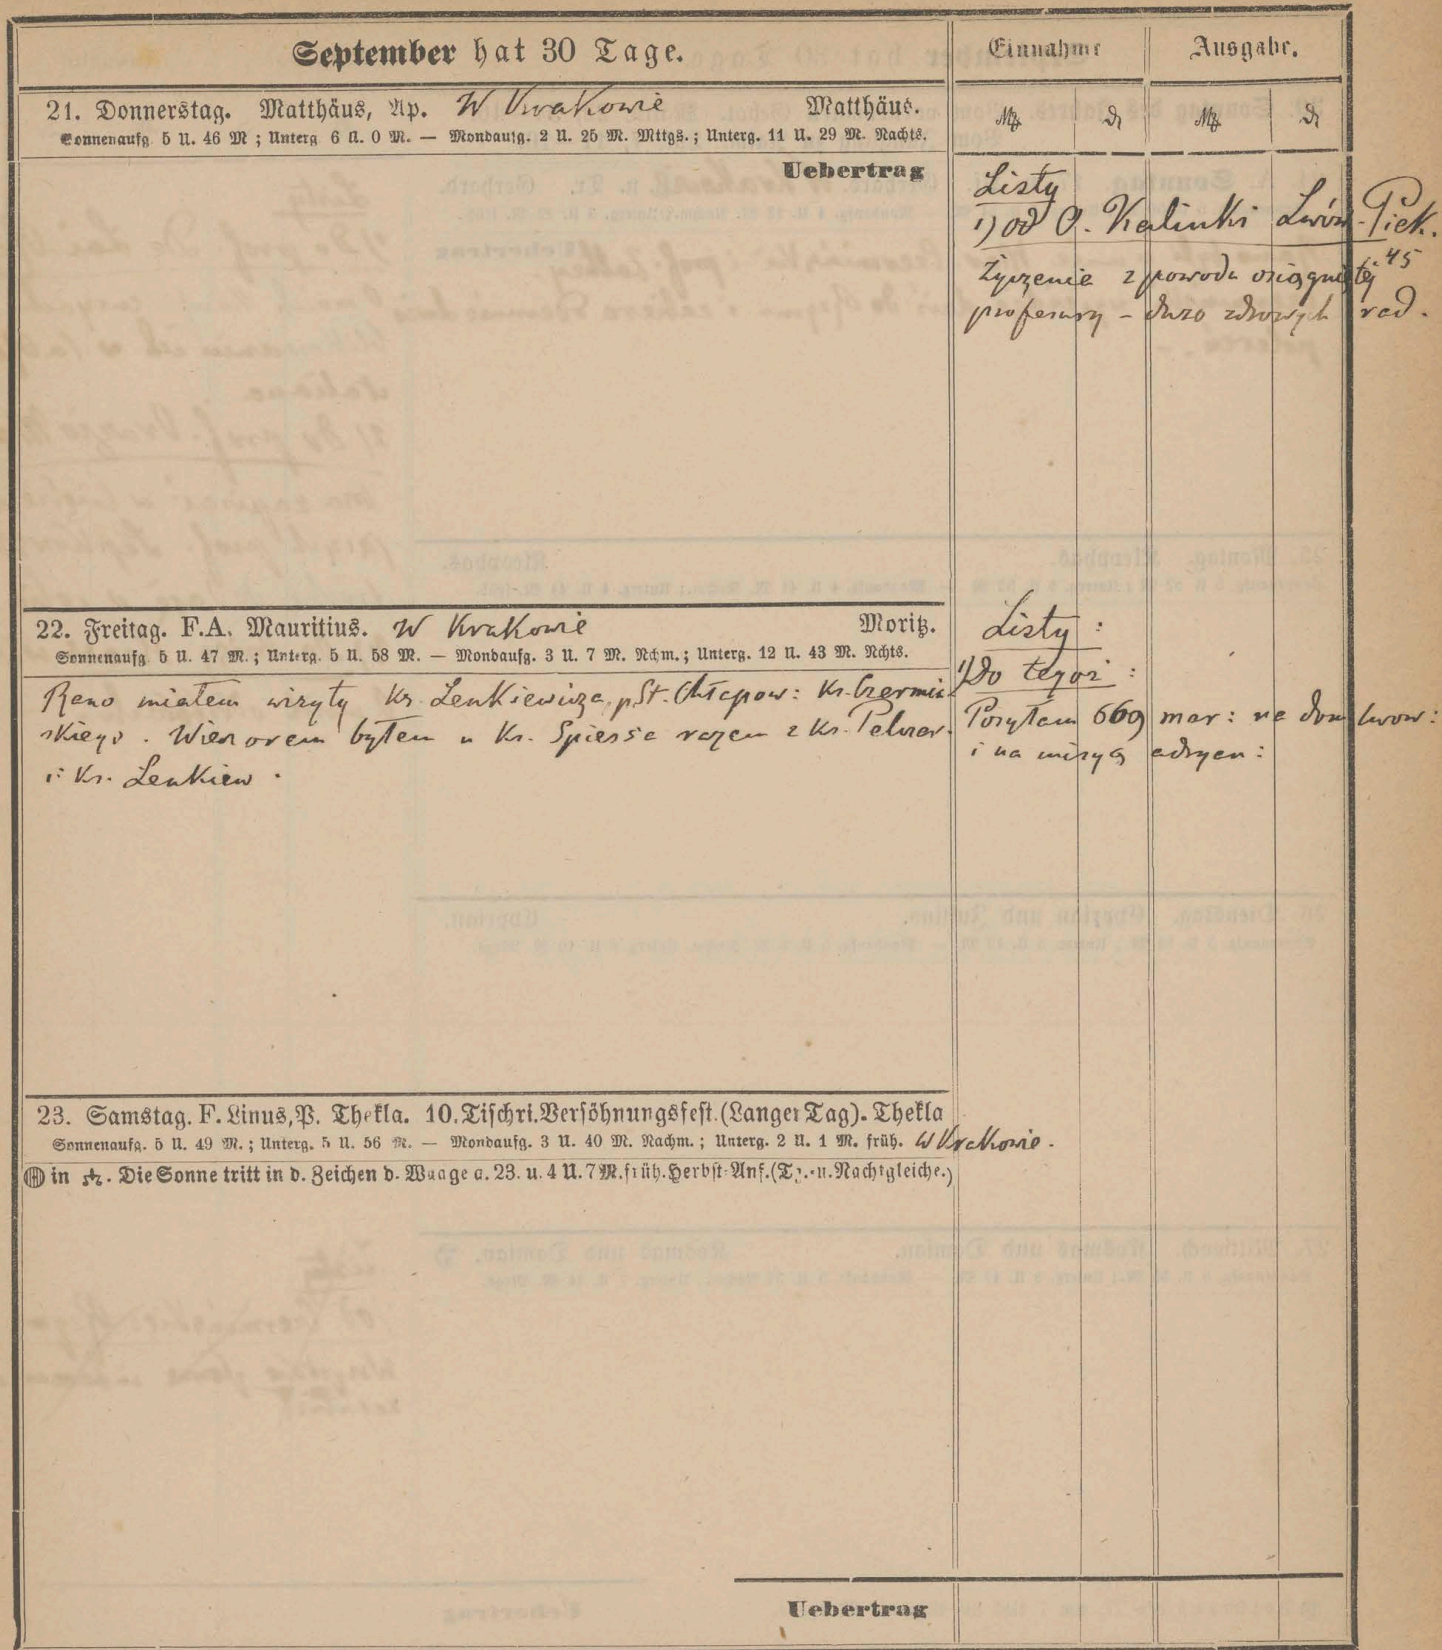 September hat 30 Tage.
Einnahme
Ausgabe.
21. Donnerstag. Matthäus, Ap. W Krakowie Matthäus.
Sonnenaufg. 5 U. 46 M; Unterg. 6 U. 0 M. — Mondaufg. 2 U. 25 M. Mttgs.; Unterg. 11 U. 29 M. Nachts.
Uebertrag
Listy
1) od O. Kalinki Lwów-Piek. 45
Życzenie z powodu osiągniętej
profesury - dużo zdrowych rad.
22. Freitag. F.A. Mauritius. W Krakowie Moritz.
Sonnenaufg. 5 U. 47 M.; Unterg. 5 U. 58 M. — Mondaufg. 3 U. 7 M. Nchm.; Unterg. 12 U. 43 M. Nchts.
Rano miałem wizyty Ks. Lenkiewicza, p. St. Chłapow: Ks. Czermiń-
skiego. Wieczorem byłem u Ks. Spiessa razem z Ks. Pelczar.
i Ks. Lenkiew.
Listy:
1) Do tegoż:
Posyłam 669 mar: na dom lwow:
i na misyą adryan:
23. Samstag. F. Linus, P. Thekla. 10. Tischri. Versöhnungsfest. (Langer Tag). Thekla
Sonnenaufg. 5 U. 49 M.; Unterg. 5 U. 56 M. — Mondaufg. 3 U. 40 M. Nachm.; Unterg. 2 U. 1 M. früh. W Krakowie.
in ♎. Die Sonne tritt in d. Zeichen d. Waage a. 23. u. 4 U. 7 M. früh. Herbst-Anf. (Tg.- u. Nachtgleiche.)
Uebertrag